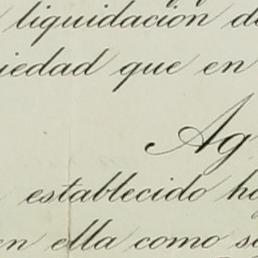 liquidación d
iedad que en
Ag
establecido h
en ella como s